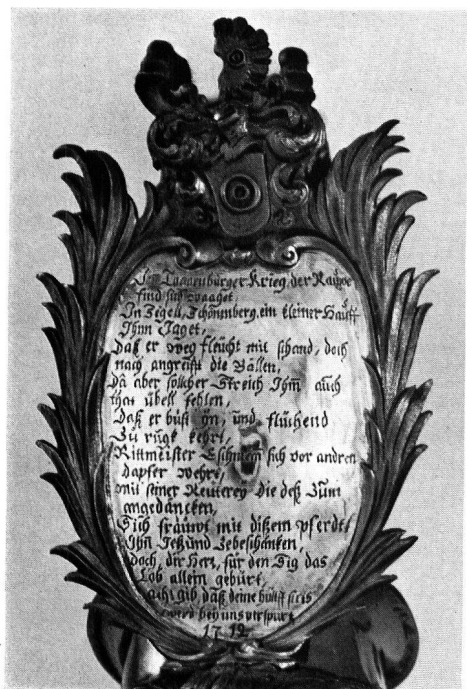 Im Toggenburger Krieg, der
find sich waaget,
In Zigell, Schönnberg, ein kleiner Hauff
Ihnn Jaget,
Daß er weg fleücht mit schand, doch
nach angreift die Bällen,
Da aber solcher Streich Ihm auch
that übell fehlen,
Daß er büst yn, und flüchend
Zu rügk kehrt,
Rittmeister Eschmann sich vor andren
dapfer wehrt,
mit seiner Reuterey die deß Zunn
angedäncken,
Sich fräüwt mit dißem pferdt,
Ihn Jetzund zebeschäncken,
doch, der Herr, für den Sig das
Lob allein gebürt,
ach gib, daß deine hülff stets
werd bey uns verspürt
1712